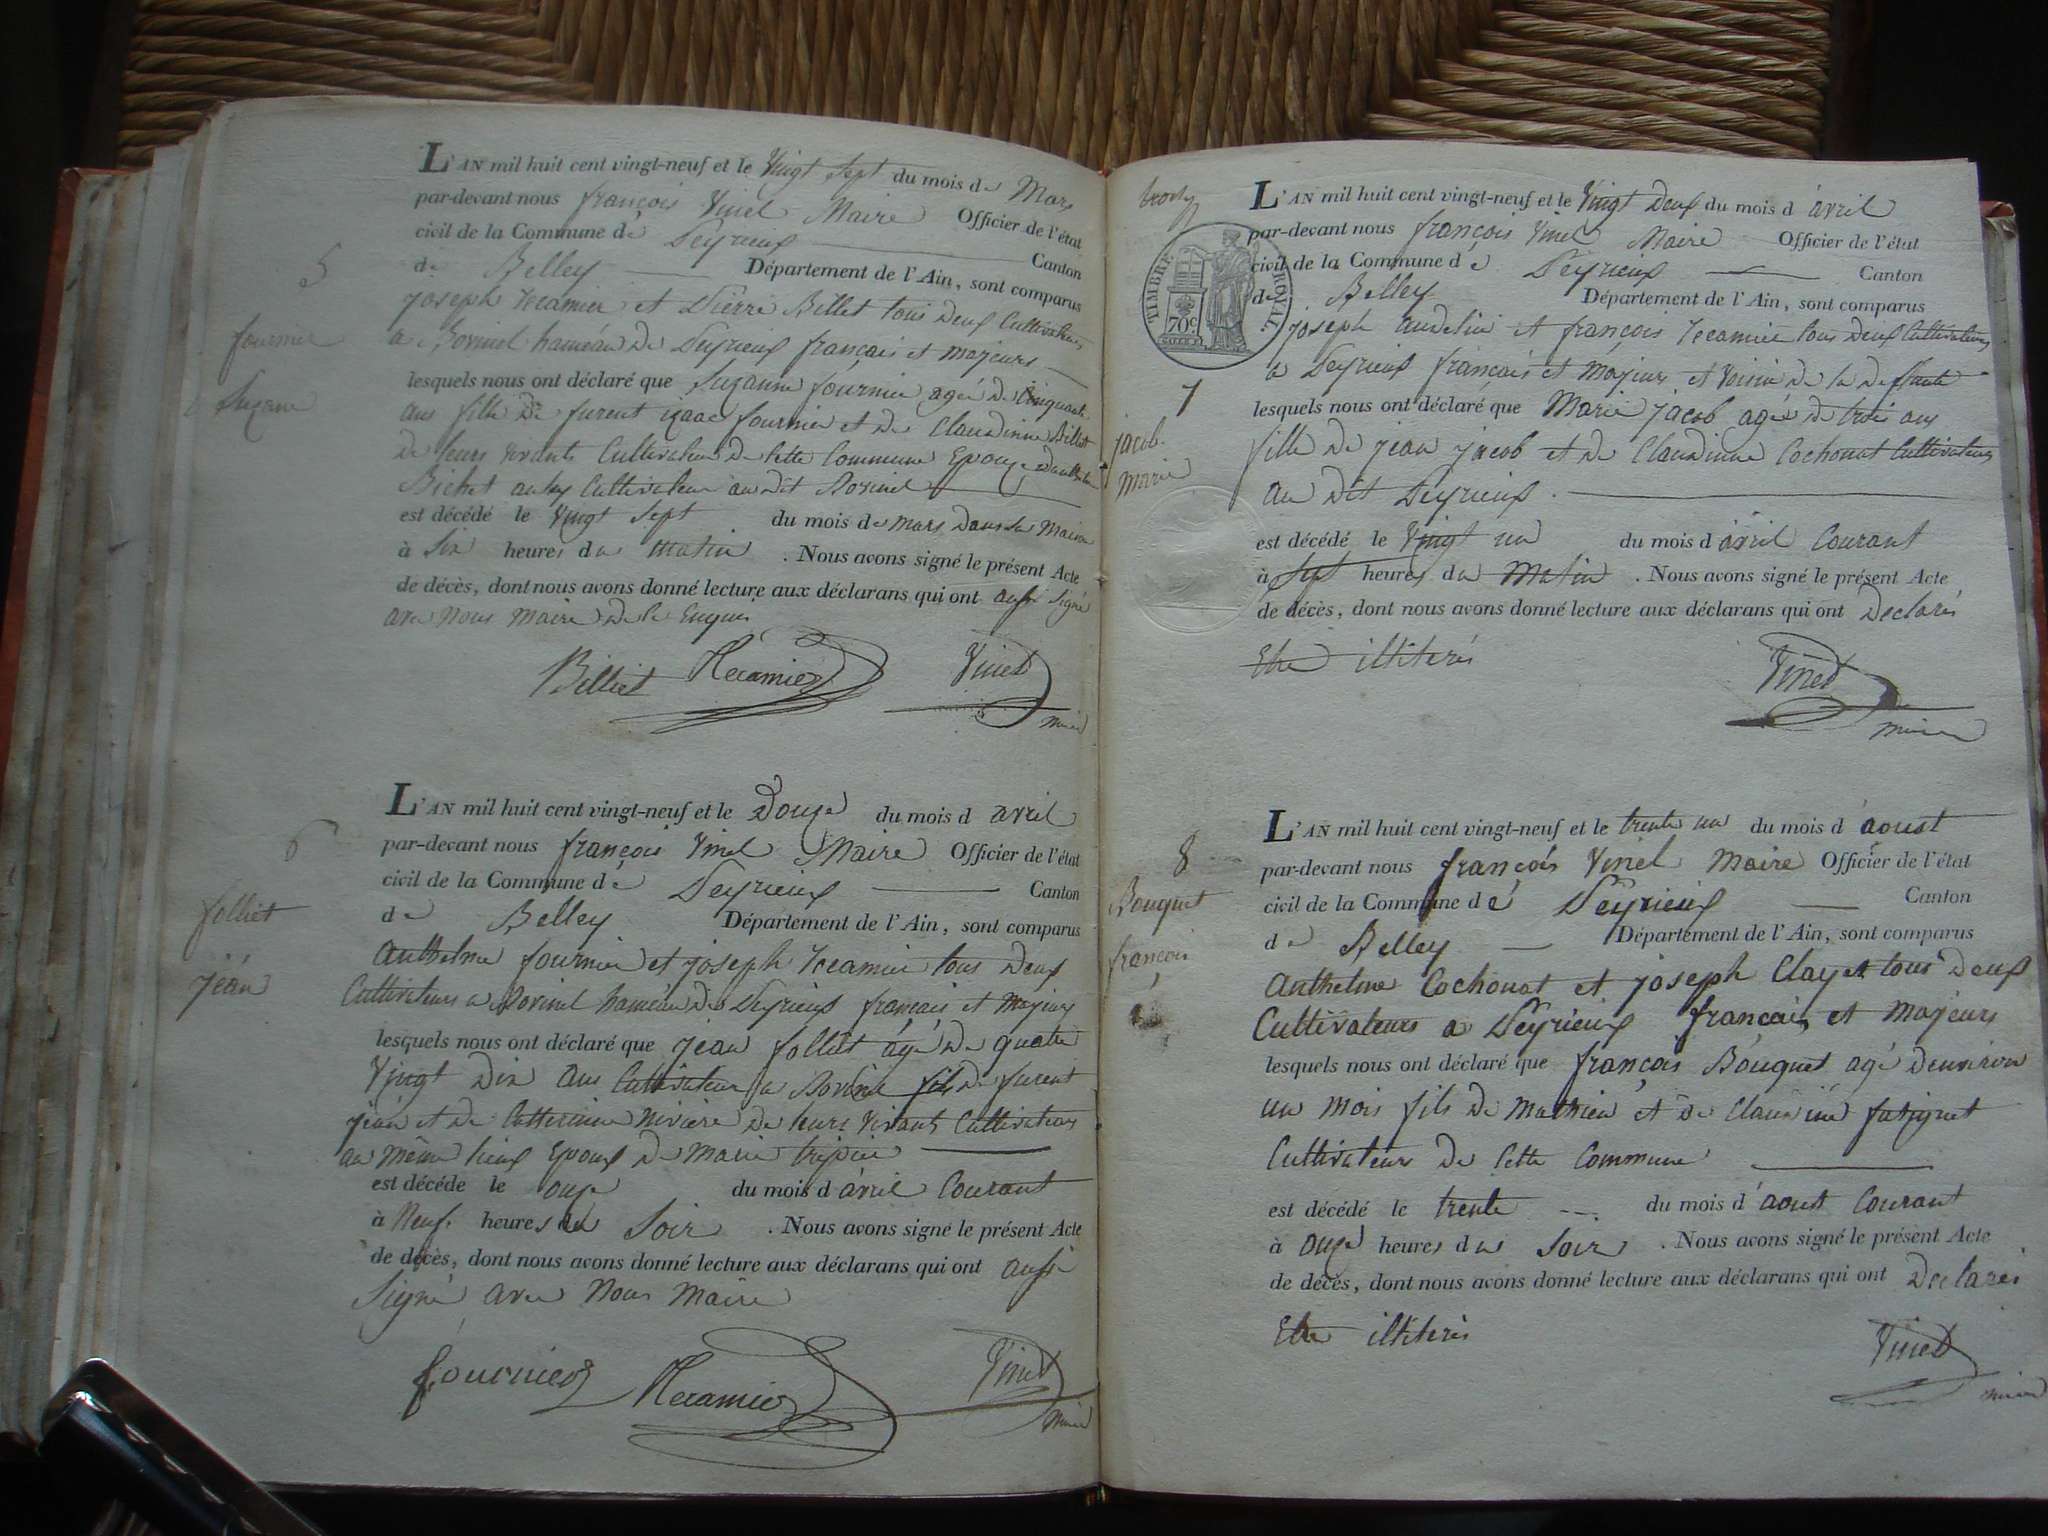 5
fournier
Suzane
L'AN mil huit cent vingt-neuf et le Vingt Sept du mois de Mars
par-devant nous françois Vinet Maire Officier de l'état
civil de la Commune dé Peyrieux Canton
de Belley Département de l'Ain, sont comparus
joseph Recamier et Pierre Billet tous Deux Cultivateurs
a hameau De Peyrieux français et majeurs
lesquels nous ont déclaré que Suzanne fournier agée De Cinquante
ans fille De furent izaac fournier et De Claudinne Billet
De leurs vivants Cultivateurs De Cette Commune Epouze
Bichet Cultivateur au Dit
est décédé le Vingt Sept du mois de Mars Dans Sa Maison
à Six heures du Matin . Nous avons signé le présent Acte
de décès, dont nous avons donné lecture aux déclarans qui ont aussi Signé
avec Nous Maire De ce Enquis
Billiet Récamier Vinet
maire
6
folliet
jéan
L'AN mil huit cent vingt-neuf et le Douze du mois d avril
par-devant nous françois Vinet Maire Officier de l'état
civil de la Commune dé Peyrieux Canton
de Belley Département de l'Ain, sont comparus
Anthelme fournier et joseph Recamier tous Deux
Cultivateurs a haméau De Peyrieux français et Majeurs
lesquels nous ont déclaré que jean folliet agé De quatre
Vingt Dix ans Cultivateur a fils De furent
jéan et De Catherinne Riviere De leurs Vivants Cultivateurs
au même lieux Epoux De Marie
est décédé le onze du mois d avril Courant
à Neuf heures du Soir . Nous avons signé le présent Acte
de décès, dont nous avons donné lecture aux déclarans qui ont aussi
Signé avec Nous Maire
fournier Récamier Vinet
maire
TIMBRE ROYAL
70c
7
jacob
marie
L'AN mil huit cent vingt-neuf et le Vingt Deux du mois d avril
par-devant nous françois Vinet Maire Officier de l'état
civil de la Commune dé Peyrieux Canton
de Belley Département de l'Ain, sont comparus
joseph et françois Recamier tous Deux Cultivateurs
a Peyrieux français et Majeurs et Voisin De la Deffunte
lesquels nous ont déclaré que Marie jacob agée De trois ans
fille De jean jacob et De Claudinne Cochonat Cultivateurs
au Dit Peyrieux .
est décédé le Vingt un du mois d avril Courant
à Sept heures du Matin . Nous avons signé le présent Acte
de décès, dont nous avons donné lecture aux déclarans qui ont Declarés
Etre illiterés
Vinet
maire
8
Bouquet
françois
L'AN mil huit cent vingt-neuf et le trente un du mois d'aoust
par-devant nous françois Vinet Maire Officier de l'état
civil de la Commune dé Peyrieux Canton
de Belley Département de l'Ain, sont comparus
Anthelme Cochonat et joseph Clayet tous Deux
Cultivateurs a Peyrieux français et Majeurs
lesquels nous ont déclaré que françois Bouquet agé Denviron
un Mois fils De Mathieu et De
Cultivateurs De Cette Commune
est décédé le trente du mois d'aoust Courant
à onze heures du Soir . Nous avons signé le présent Acte
de décès, dont nous avons donné lecture aux déclarans qui ont Declarés
Etre illiterés
Vinet
maire